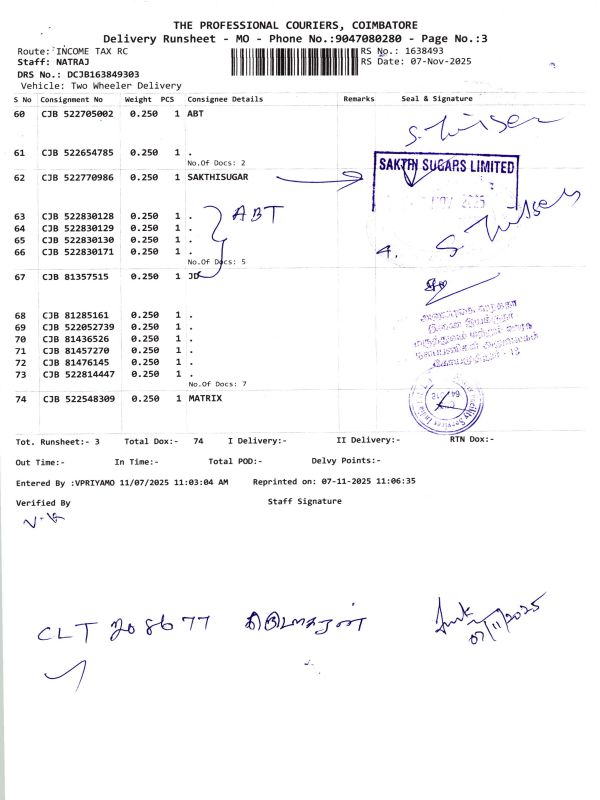 THE PROFESSIONAL COURIERS, COIMBATORE
Delivery Runsheet - MO - Phone No.:9047080280 - Page No.:3
Route: INCOME TAX RC
RS No.: 1638493
Staff: NATRAJ
RS Date: 07-Nov-2025
DRS No.: DCJB163849303
Vehicle: Two Wheeler Delivery
S No Consignment No Weight PCS Consignee Details Remarks Seal & Signature
60 CJB 522705002 0.250 1 ABT
61 CJB 522654785 0.250 1 .
No.Of Docs: 2
SAKTHI SUGARS LIMITED
62 CJB 522770986 0.250 1 SAKTHISUGAR
NOV 2025
63 CJB 522830128 0.250 1 .
ABT
64 CJB 522830129 0.250 1 .
65 CJB 522830130 0.250 1 .
66 CJB 522830171 0.250 1 .
4.
No.Of Docs: 5
67 CJB 81357515 0.250 1 JD
68 CJB 81285161 0.250 1 .
69 CJB 522052739 0.250 1 .
70 CJB 81436526 0.250 1 .
71 CJB 81457270 0.250 1 .
72 CJB 81476145 0.250 1 .
73 CJB 522814447 0.250 1 .
No.Of Docs: 7
74 CJB 522548309 0.250 1 MATRIX
Tot. Runsheet:- 3 Total Dox:- 74 I Delivery:- II Delivery:- RTN Dox:-
Out Time:- In Time:- Total POD:- Delvy Points:-
Entered By :VPRIYAMO 11/07/2025 11:03:04 AM Reprinted on: 07-11-2025 11:06:35
Verified By Staff Signature
CLT 208677
07/11/2025